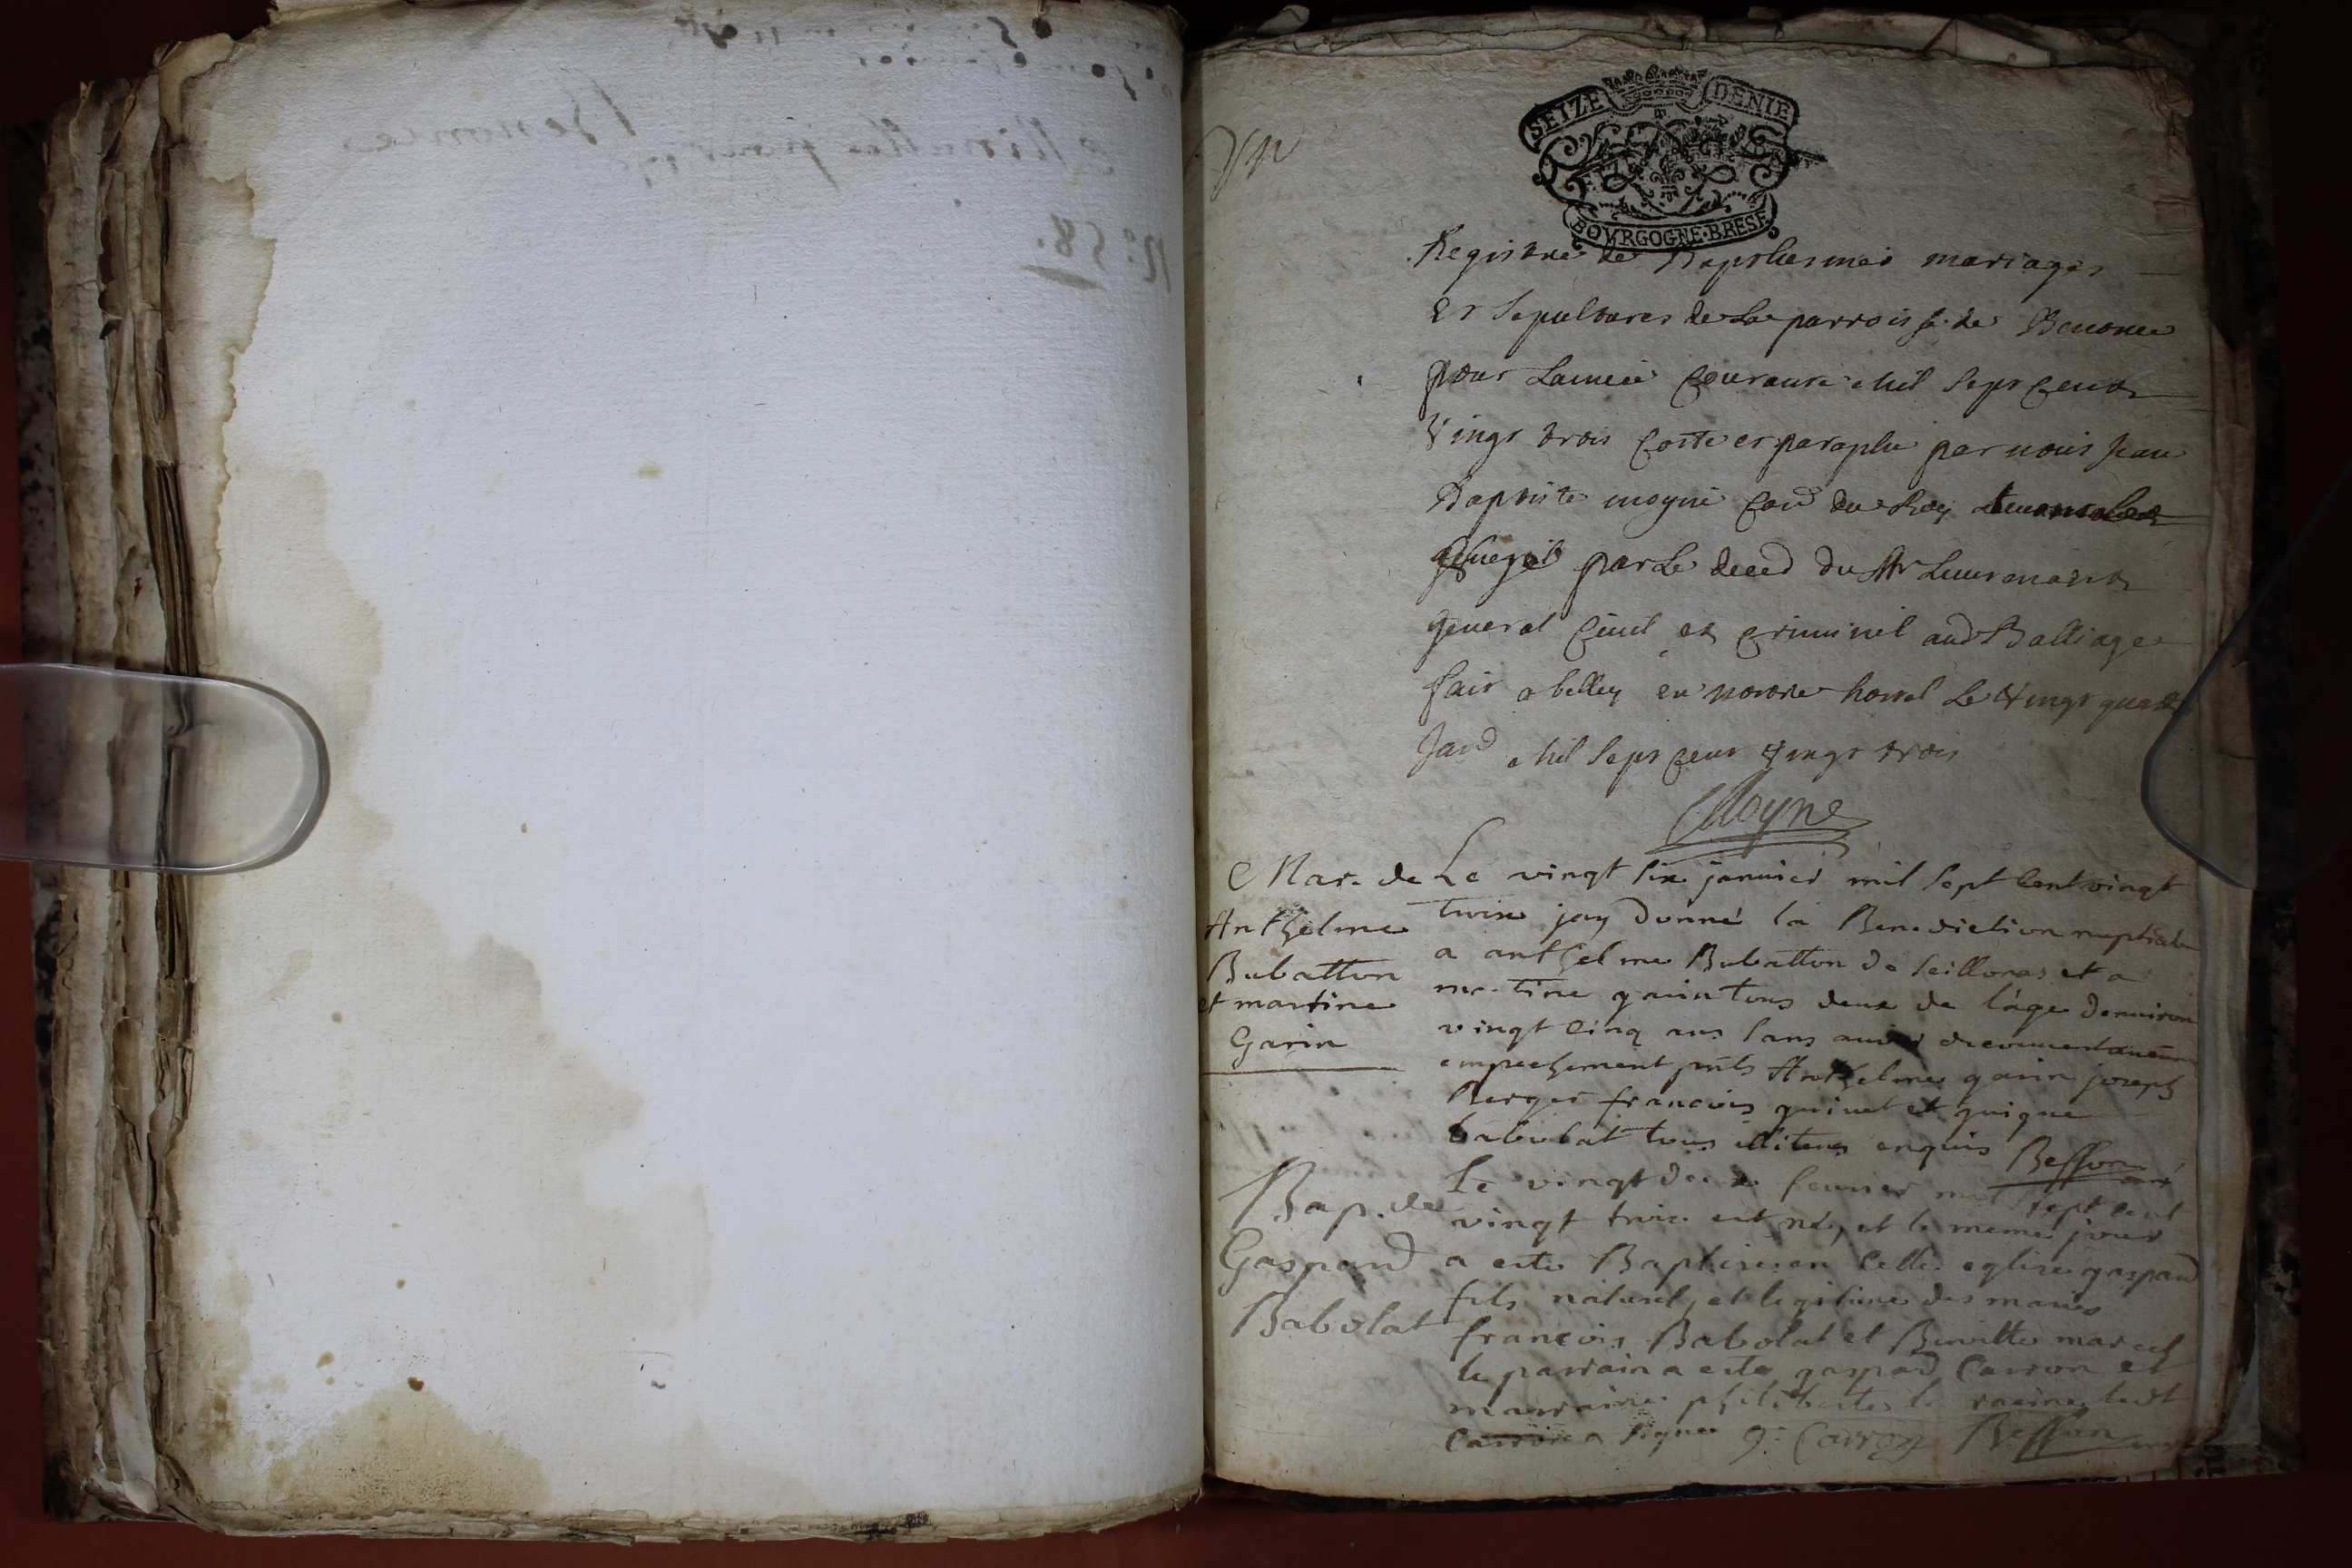 SEIZE DENIE
BOVRGOGNE·BRESE
Registre de Baptiesmes mariages
et Sepultures de La parroisse de Benonce
pour Lannée Courante Mil Sept Cent
Vingt trois Cotte et paraphe par nous Jean
Baptiste moyne Con du Roy
par Le deced du Sr Lieutenant
general Civil et Criminel aud Balliage
fait a belley en nostre hostel Le Vingt quatre
Janv Mil Sept Cent Vingt trois
Moyne
Mar. de
Anthelme
Bubatton
et martine
Garin
Le vingt six janvier mil sept cent vingt
trois jay donné la Benediction nuptiale
a anthelme Bubatton de Seillonas et a
martine garin tous deux de l'age denviron
vingt cinq ans sans avoir
empechement pnts Anthelme garin joseph
Berger francois quinet et guigue
babolat tous illiteres enquis Besson curé
Bap. de
Gaspard
Babolat
Le vingt deux fevrier mil sept cent
vingt trois est né, et le meme jour
a esté Baptisé en cette eglise gaspard
fils naturel, et legitime des mariés
francois Babolat et Benoitte marcel
le parrain a esté gaspard Carron et
marraine philiberte la racine ledt
Carron a signé g: Carron Besson curé
N° 58.